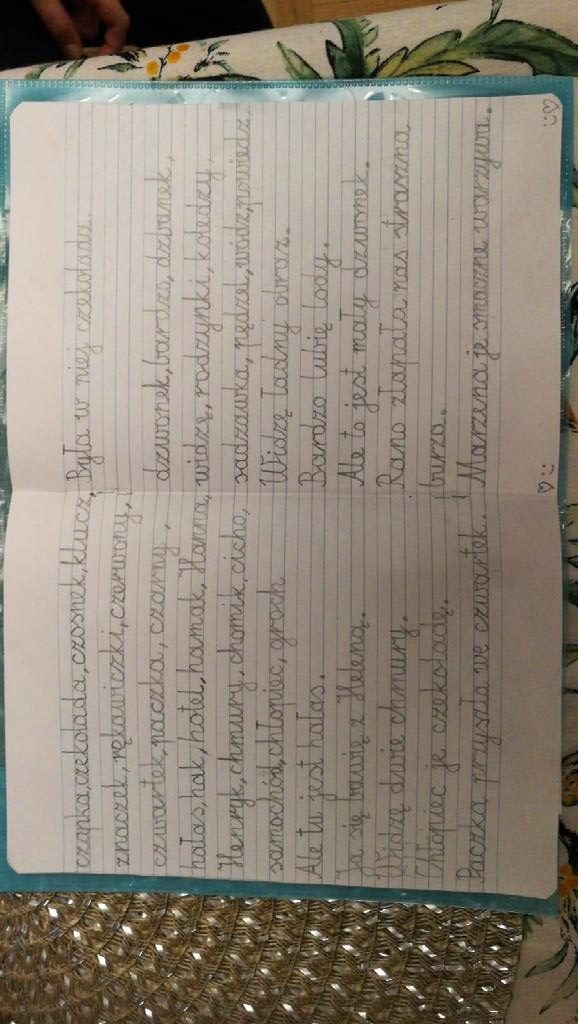 czapka, czekolada, czosnek, klucz,
znaczek, rękawiczki, czerwony,
czwartek, paczka, czarny,
hałas, hak, hotel, hamak, Hanna,
Henryk, chmury, chomik, cicho,
samochód, chłopiec, groch
Ale tu jest hałas.
Ja się bawię z Heleną.
Widzę dwie chmury.
Chłopiec je czekoladę.
Paczka przyszła we czwartek.
Była w niej czekolada.
dzwonek, bardzo, dzbanek,
widzę, rodzynki, koledzy,
sadzawka, pędzel, wódz, powiedz
Widzę ładny obraz.
Bardzo lubię lody.
Ale to jest mały dzwonek.
Rano złapała nas straszna
burza.
Marzena je smaczne warzywa.